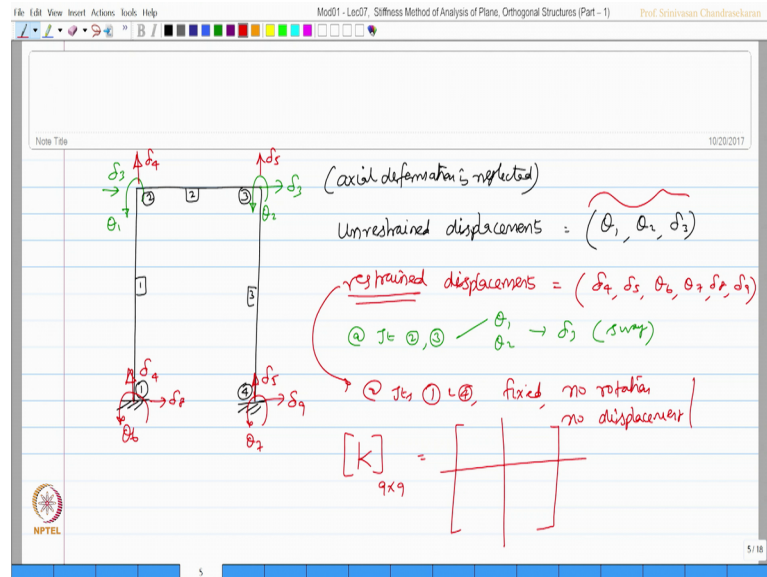 File Edit View Insert Actions Tools Help
Mod01 - Lec07, Stiffness Method of Analysis of Plane, Orthogonal Structures (Part – 1)
Prof. Srinivasan Chandrasekaran
B I
Note Title
10/20/2017
δ4
δ5
δ3
δ3
② 2 ③
θ1
θ2
1
3
δ4
δ5
① ④
δ8
δ9
θ6
θ7
(axial deformation is neglected)
Unrestrained displacement = (θ1, θ2, δ3)
restrained displacement = (δ4, δ5, θ6, θ7, δ8, δ9)
@ Jt ②, ③ θ1 θ2 → δ3 (sway)
@ Jts ① & ④, fixed, no rotation
no displacement
[K] 9x9 =
NPTEL
5 / 18
5